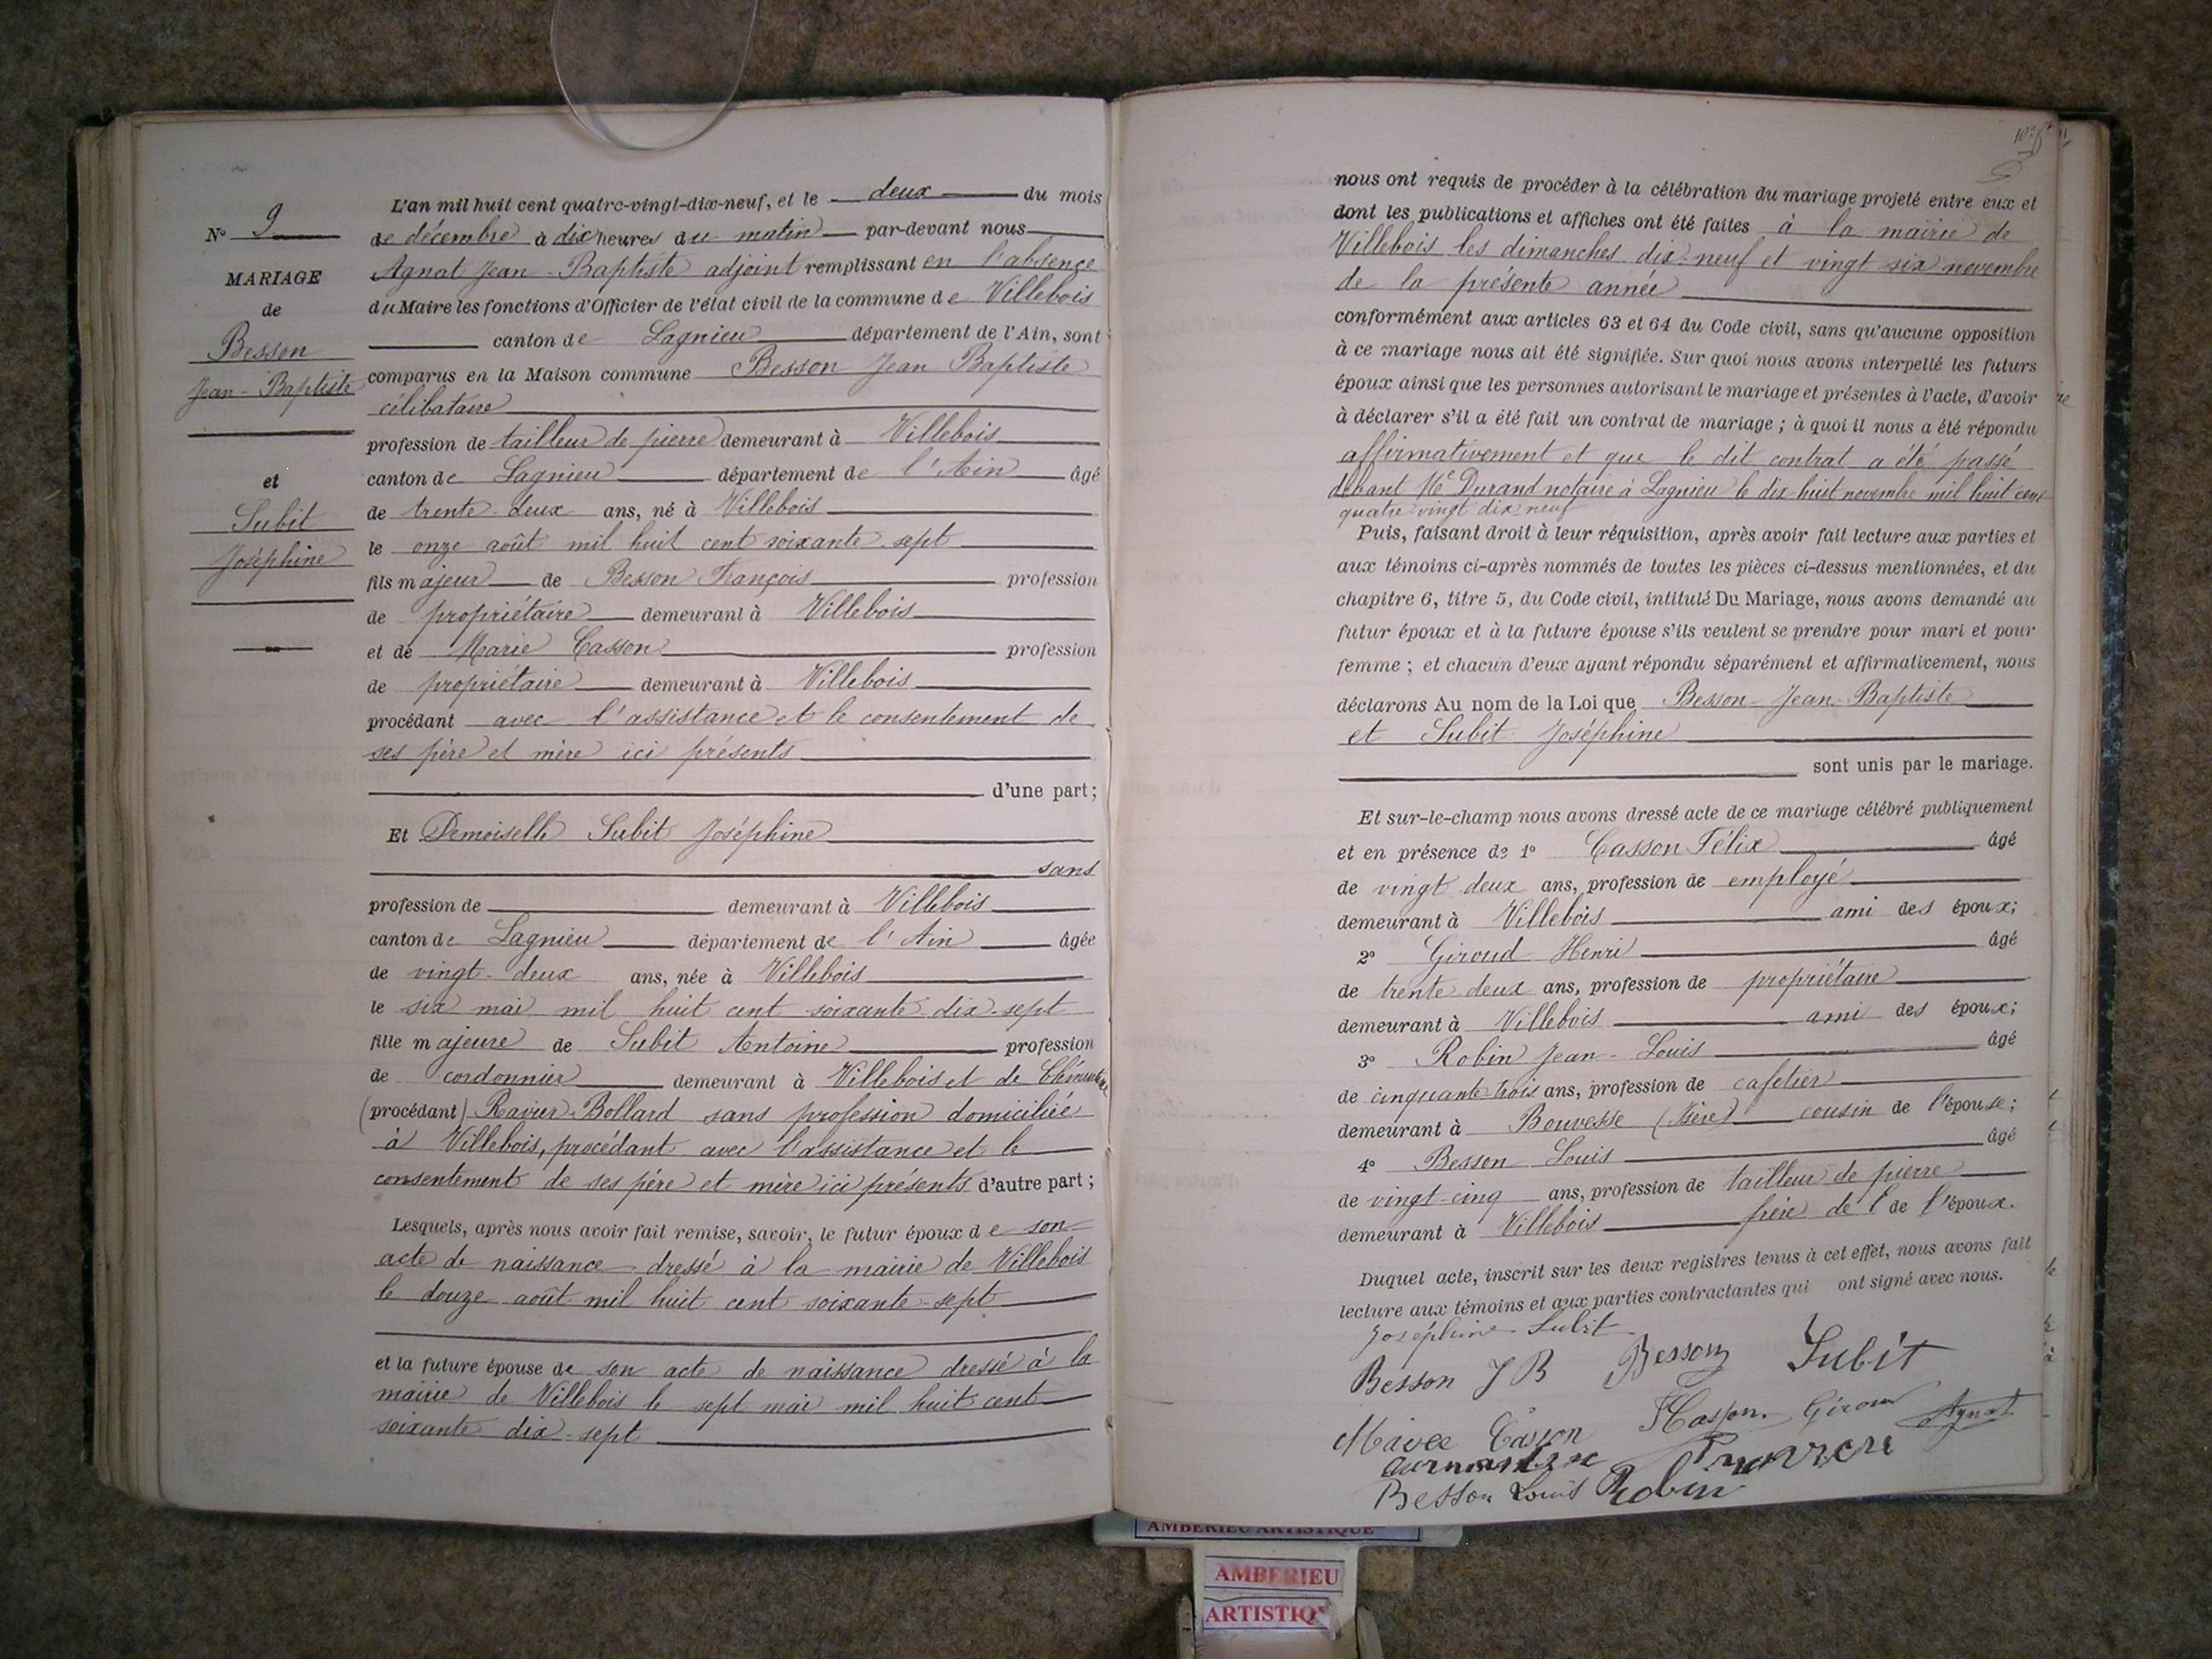 N° 9
MARIAGE
de
Besson
Jean-Baptiste
et
Subit
Joséphine
L'an mil huit cent quatre-vingt-dix-neuf, et le deux du mois
de décembre à dix heures du matin par-devant nous
Agnat Jean-Baptiste adjoint remplissant en l'absence
du Maire les fonctions d'Officier de l'état civil de la commune de Villebois
canton de Lagnieu département de l'Ain, sont
comparus en la Maison commune Besson Jean Baptiste
célibataire
profession de tailleur de pierre demeurant à Villebois
canton de Lagnieu département de l'Ain âgé
de trente-deux ans, né à Villebois
le onze août mil huit cent soixante-sept
fils majeur de Besson François profession
de propriétaire demeurant à Villebois
et de Marie Casson profession
de propriétaire demeurant à Villebois
procédant avec l'assistance et le consentement de
ses père et mère ici présents
d'une part;
Et Demoiselle Subit Joséphine
sans
profession de demeurant à Villebois
canton de Lagnieu département de l'Ain âgée
de vingt-deux ans, née à Villebois
le six mai mil huit cent soixante-dix-sept
fille majeure de Subit Antoine profession
de cordonnier demeurant à Villebois et de
(procédant) Ravier-Bollard sans profession domiciliée
à Villebois, procédant avec l'assistance et le
consentement de ses père et mère ici présents d'autre part;
Lesquels, après nous avoir fait remise, savoir, le futur époux de son
acte de naissance dressé à la mairie de Villebois
le douze août mil huit cent soixante-sept
et la future épouse de son acte de naissance dressé à la
mairie de Villebois le sept mai mil huit cent
soixante-dix-sept
nous ont requis de procéder à la célébration du mariage projeté entre eux et
dont les publications et affiches ont été faites à la mairie de
Villebois les dimanches dix-neuf et vingt-six novembre
de la présente année
conformément aux articles 63 et 64 du Code civil, sans qu'aucune opposition
à ce mariage nous ait été signifiée. Sur quoi nous avons interpellé les futurs
époux ainsi que les personnes autorisant le mariage et présentes à l'acte, d'avoir
à déclarer s'il a été fait un contrat de mariage; à quoi il nous a été répondu
affirmativement et que le dit contrat a été passé
devant Me Durand notaire à Lagnieu le dix-huit novembre mil huit cent
quatre vingt dix-neuf
Puis, faisant droit à leur réquisition, après avoir fait lecture aux parties et
aux témoins ci-après nommés de toutes les pièces ci-dessus mentionnées, et du
chapitre 6, titre 5, du Code civil, intitulé Du Mariage, nous avons demandé au
futur époux et à la future épouse s'ils veulent se prendre pour mari et pour
femme; et chacun d'eux ayant répondu séparément et affirmativement, nous
déclarons Au nom de la Loi que Besson Jean-Baptiste
et Subit Joséphine
sont unis par le mariage.
Et sur-le-champ nous avons dressé acte de ce mariage célébré publiquement
et en présence de 1° Casson Félix âgé
de vingt deux ans, profession de employé
demeurant à Villebois ami des époux;
2° Giroud Henri âgé
de trente deux ans, profession de propriétaire
demeurant à Villebois ami des époux;
3° Robin Jean-Louis âgé
de cinquante-trois ans, profession de cafetier
demeurant à Bouvesse (Isère) cousin de l'épouse;
4° Besson Louis âgé
de vingt-cinq ans, profession de tailleur de pierre
demeurant à Villebois frère de l' de l'époux.
Duquel acte, inscrit sur les deux registres tenus à cet effet, nous avons fait
lecture aux témoins et aux parties contractantes qui ont signé avec nous.
Joséphine Subit
Besson J B Besson Subit
Casson Giroud Agnat
Besson Louis Robin
AMBERIEU ARTISTIQUE
AMBERIEU
ARTISTIQ